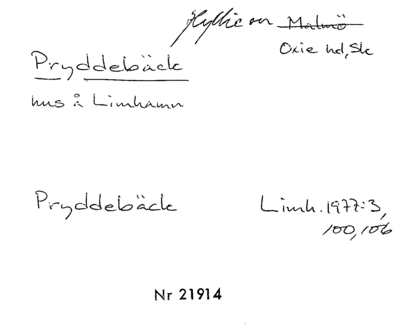 Hyllie sn Malmö
Oxie hd, Sk
Pryddebäck
hus å Limhamn
Pryddebäck Limh. 1977:3,
100, 106
Nr 21914